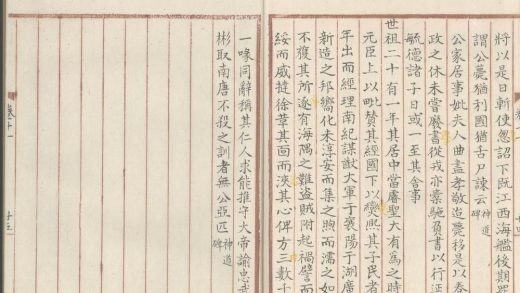 將以是日斬使忽詔下既江西海艦後期罪
謂公薨猶利國猶古尸諫云神道碑
公家居事妣夫人曲盡孝敬迨薨移是以奉
政之休未嘗廢書從戎亦橐駞負書以行
毓德諸子日或一至其舍事
世祖二十有一年其居中當睿聖大有為之時
元臣上以毗贊其經國下以燮熈其子民者
年出而經理南紀謀猷大軍于襄陽于湖廣
新造之邦嚮化未淳安而集之煦而濡之如
不獲其所遂有海隅之難盗賊附起禍譬而
綏而威㨗徐葺其面而浹其心俾方三數千
一喙同辭稱其仁人求能推守大帝諭忠武
彬取南唐不殺之訓者無公亞匹神道碑
卷十一